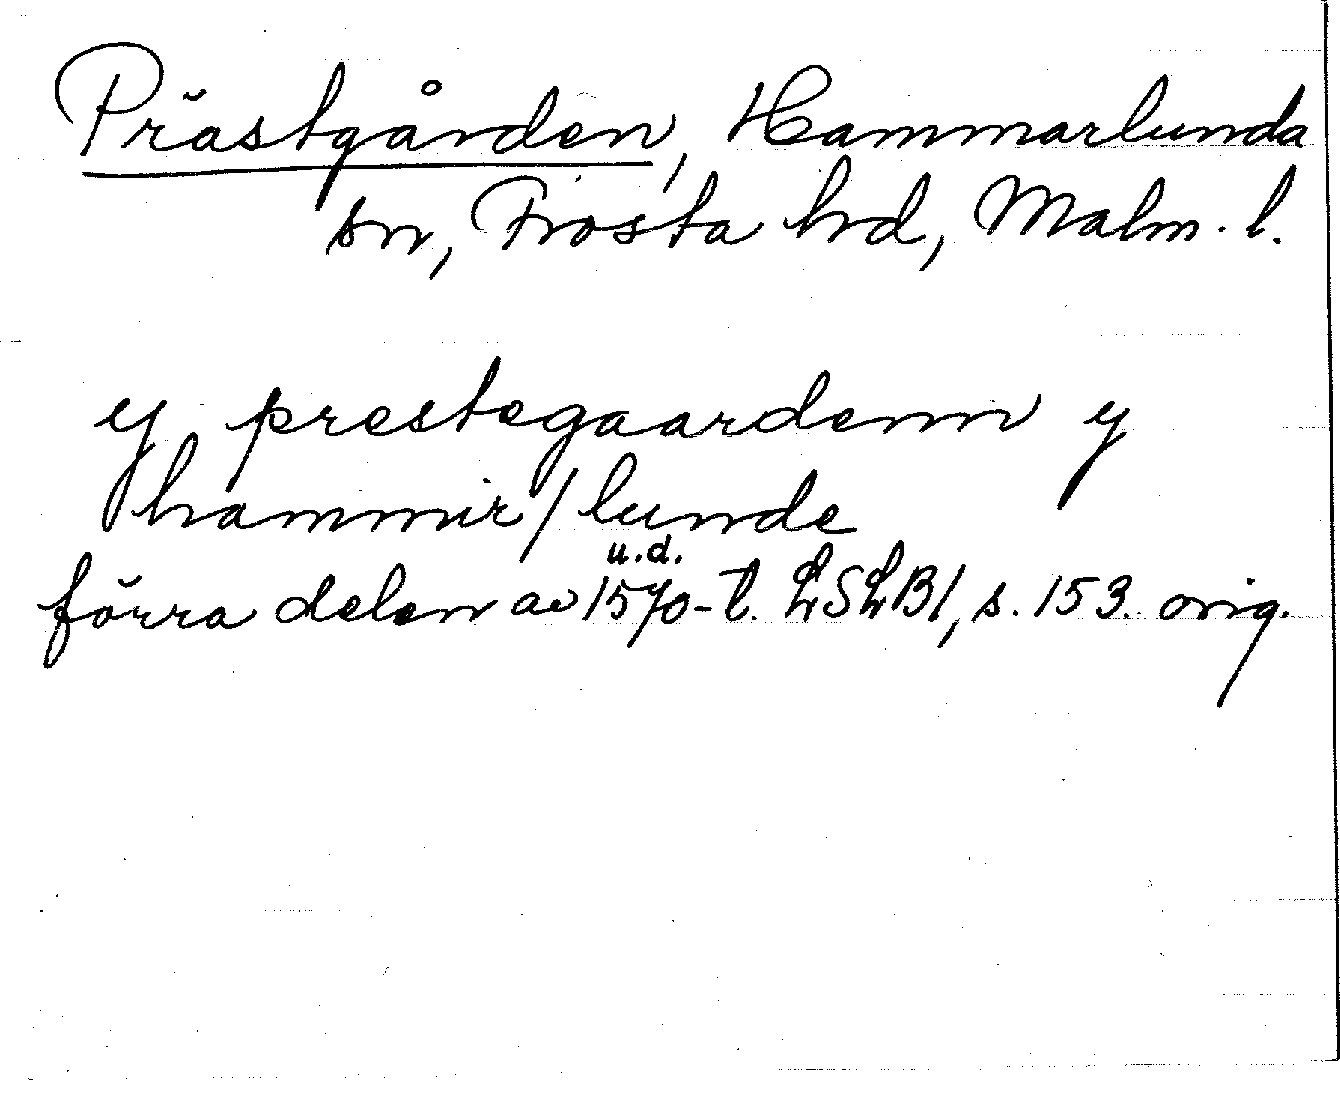 Prästgården, Hammarlunda
sn, Frosta hrd, Malm. l.
y prestegaardenn y
hammir/lunde
u.d.
förra delen av 1570-t. LSLB1, s. 153. orig.